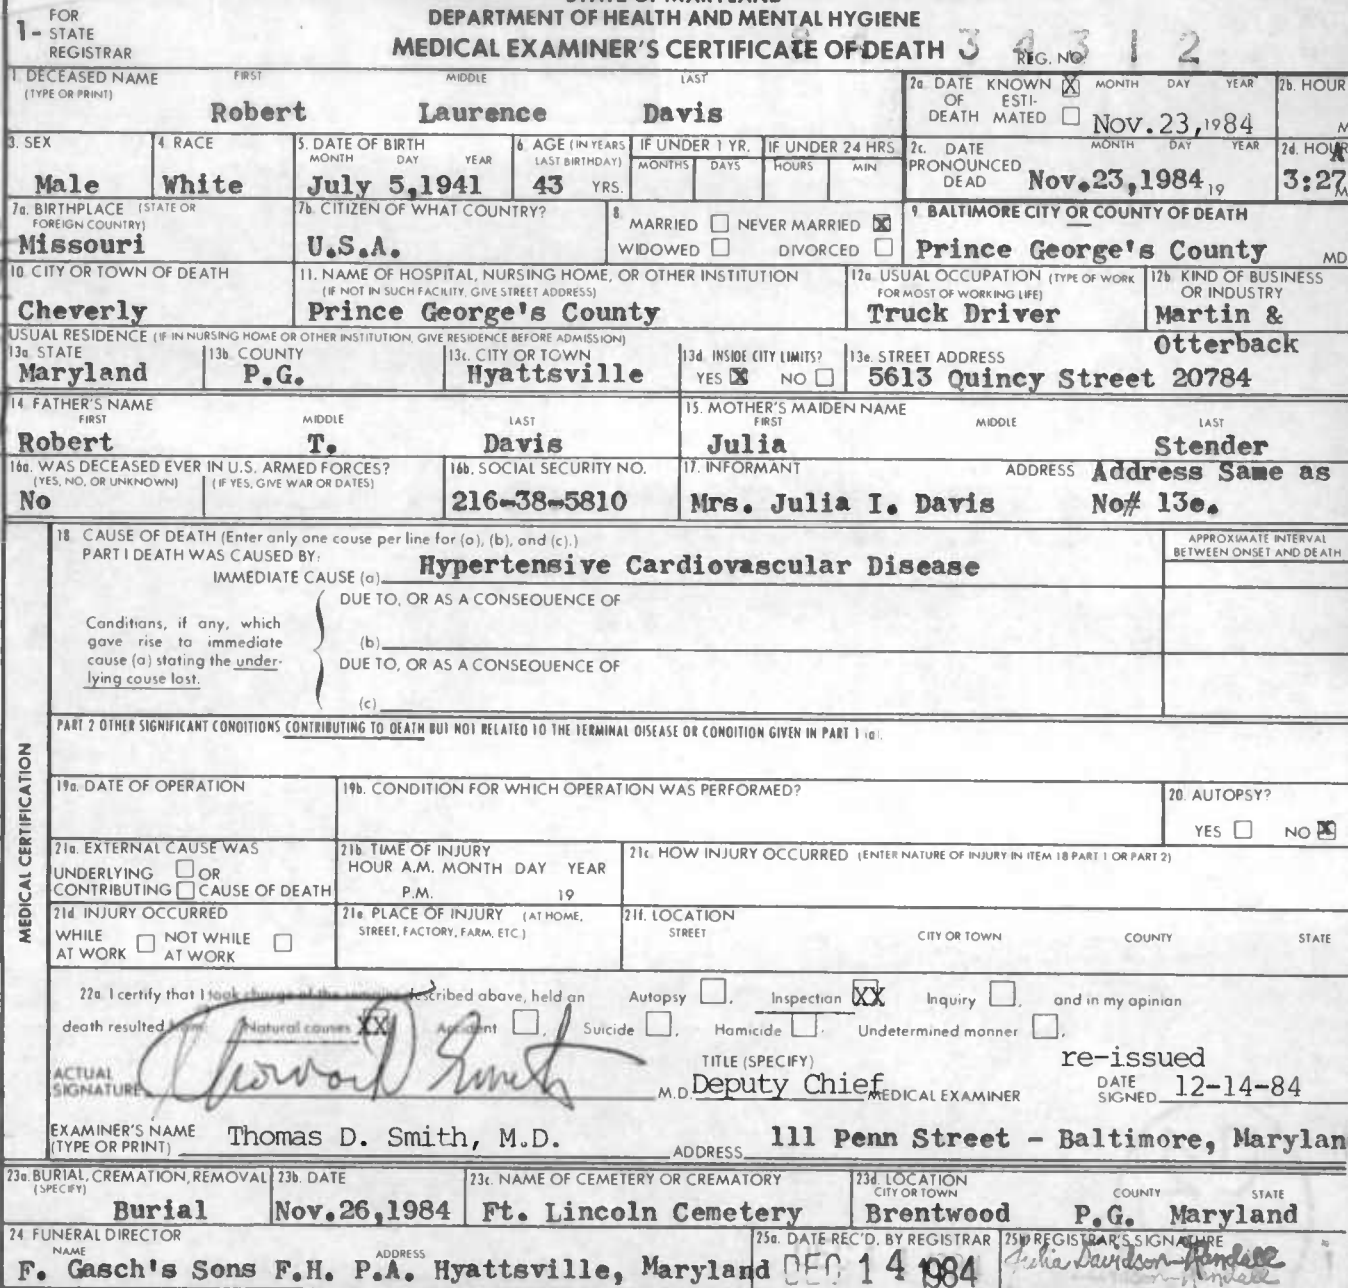 FOR
1- STATE
REGISTRAR
STATE OF MARYLAND
DEPARTMENT OF HEALTH AND MENTAL HYGIENE
MEDICAL EXAMINER'S CERTIFICATE OF DEATH
REG. NO. 34312
1. DECEASED NAME FIRST MIDDLE LAST
(TYPE OR PRINT)
Robert Laurence Davis
2a. DATE KNOWN X MONTH DAY YEAR
OF ESTI-
DEATH MATED
Nov.23,1984
2b. HOUR
M
3. SEX
Male
4. RACE
White
5. DATE OF BIRTH
MONTH DAY YEAR
July 5,1941
6. AGE (IN YEARS
LAST BIRTHDAY)
43 YRS.
IF UNDER 1 YR.
MONTHS DAYS
IF UNDER 24 HRS
HOURS MIN
2c. DATE MONTH DAY YEAR
PRONOUNCED
DEAD Nov.23,1984 19
2d. HOUR
A
3:27 M
7a. BIRTHPLACE (STATE OR
FOREIGN COUNTRY)
Missouri
7b. CITIZEN OF WHAT COUNTRY?
U.S.A.
8. MARRIED NEVER MARRIED X
WIDOWED DIVORCED
9. BALTIMORE CITY OR COUNTY OF DEATH
Prince George's County MD
10. CITY OR TOWN OF DEATH
Cheverly
11. NAME OF HOSPITAL, NURSING HOME, OR OTHER INSTITUTION
(IF NOT IN SUCH FACILITY, GIVE STREET ADDRESS)
Prince George's County
12a. USUAL OCCUPATION (TYPE OF WORK
FOR MOST OF WORKING LIFE)
Truck Driver
12b. KIND OF BUSINESS
OR INDUSTRY
Martin &
Otterback
USUAL RESIDENCE (IF IN NURSING HOME OR OTHER INSTITUTION, GIVE RESIDENCE BEFORE ADMISSION)
13a. STATE
Maryland
13b. COUNTY
P.G.
13c. CITY OR TOWN
Hyattsville
13d. INSIDE CITY LIMITS?
YES X NO
13e. STREET ADDRESS
5613 Quincy Street 20784
14. FATHER'S NAME
FIRST MIDDLE LAST
Robert T. Davis
15. MOTHER'S MAIDEN NAME
FIRST MIDDLE LAST
Julia Stender
16a. WAS DECEASED EVER IN U.S. ARMED FORCES?
(YES, NO, OR UNKNOWN) (IF YES, GIVE WAR OR DATES)
No
16b. SOCIAL SECURITY NO.
216-38-5810
17. INFORMANT ADDRESS Address Same as
Mrs. Julia I. Davis No# 13e.
18. CAUSE OF DEATH (Enter only one cause per line for (a), (b), and (c).)
PART I DEATH WAS CAUSED BY:
IMMEDIATE CAUSE (a) Hypertensive Cardiovascular Disease
APPROXIMATE INTERVAL
BETWEEN ONSET AND DEATH
DUE TO, OR AS A CONSEQUENCE OF
Conditions, if any, which
gave rise to immediate
cause (a) stating the under-
lying cause last.
(b)
DUE TO, OR AS A CONSEQUENCE OF
(c)
PART 2 OTHER SIGNIFICANT CONDITIONS CONTRIBUTING TO DEATH BUT NOT RELATED TO THE TERMINAL DISEASE OR CONDITION GIVEN IN PART 1 (a).
MEDICAL CERTIFICATION
19a. DATE OF OPERATION
19b. CONDITION FOR WHICH OPERATION WAS PERFORMED?
20. AUTOPSY?
YES NO X
21a. EXTERNAL CAUSE WAS
UNDERLYING OR
CONTRIBUTING CAUSE OF DEATH
21b. TIME OF INJURY
HOUR A.M. MONTH DAY YEAR
P.M. 19
21c. HOW INJURY OCCURRED (ENTER NATURE OF INJURY IN ITEM 18 PART 1 OR PART 2)
21d. INJURY OCCURRED
WHILE NOT WHILE
AT WORK AT WORK
21e. PLACE OF INJURY (AT HOME,
STREET, FACTORY, FARM, ETC.)
21f. LOCATION
STREET CITY OR TOWN COUNTY STATE
22a. I certify that I took charge of the remains described above, held an Autopsy , Inspection XX Inquiry , and in my opinion
death resulted from: Natural causes XX Accident , Suicide , Homicide , Undetermined manner .
re-issued
ACTUAL
SIGNATURE Thomas D Smith M.D.
TITLE (SPECIFY)
Deputy Chief MEDICAL EXAMINER
DATE
SIGNED 12-14-84
EXAMINER'S NAME
(TYPE OR PRINT) Thomas D. Smith, M.D.
ADDRESS 111 Penn Street - Baltimore, Marylan
23a. BURIAL, CREMATION, REMOVAL
(SPECIFY)
Burial
23b. DATE
Nov.26,1984
23c. NAME OF CEMETERY OR CREMATORY
Ft. Lincoln Cemetery
23d. LOCATION
CITY OR TOWN COUNTY STATE
Brentwood P.G. Maryland
24. FUNERAL DIRECTOR
NAME ADDRESS
F. Gasch's Sons F.H. P.A. Hyattsville, Maryland
25a. DATE REC'D. BY REGISTRAR
DEC 14 1984
25b. REGISTRAR'S SIGNATURE
Julia Davidson-Randall